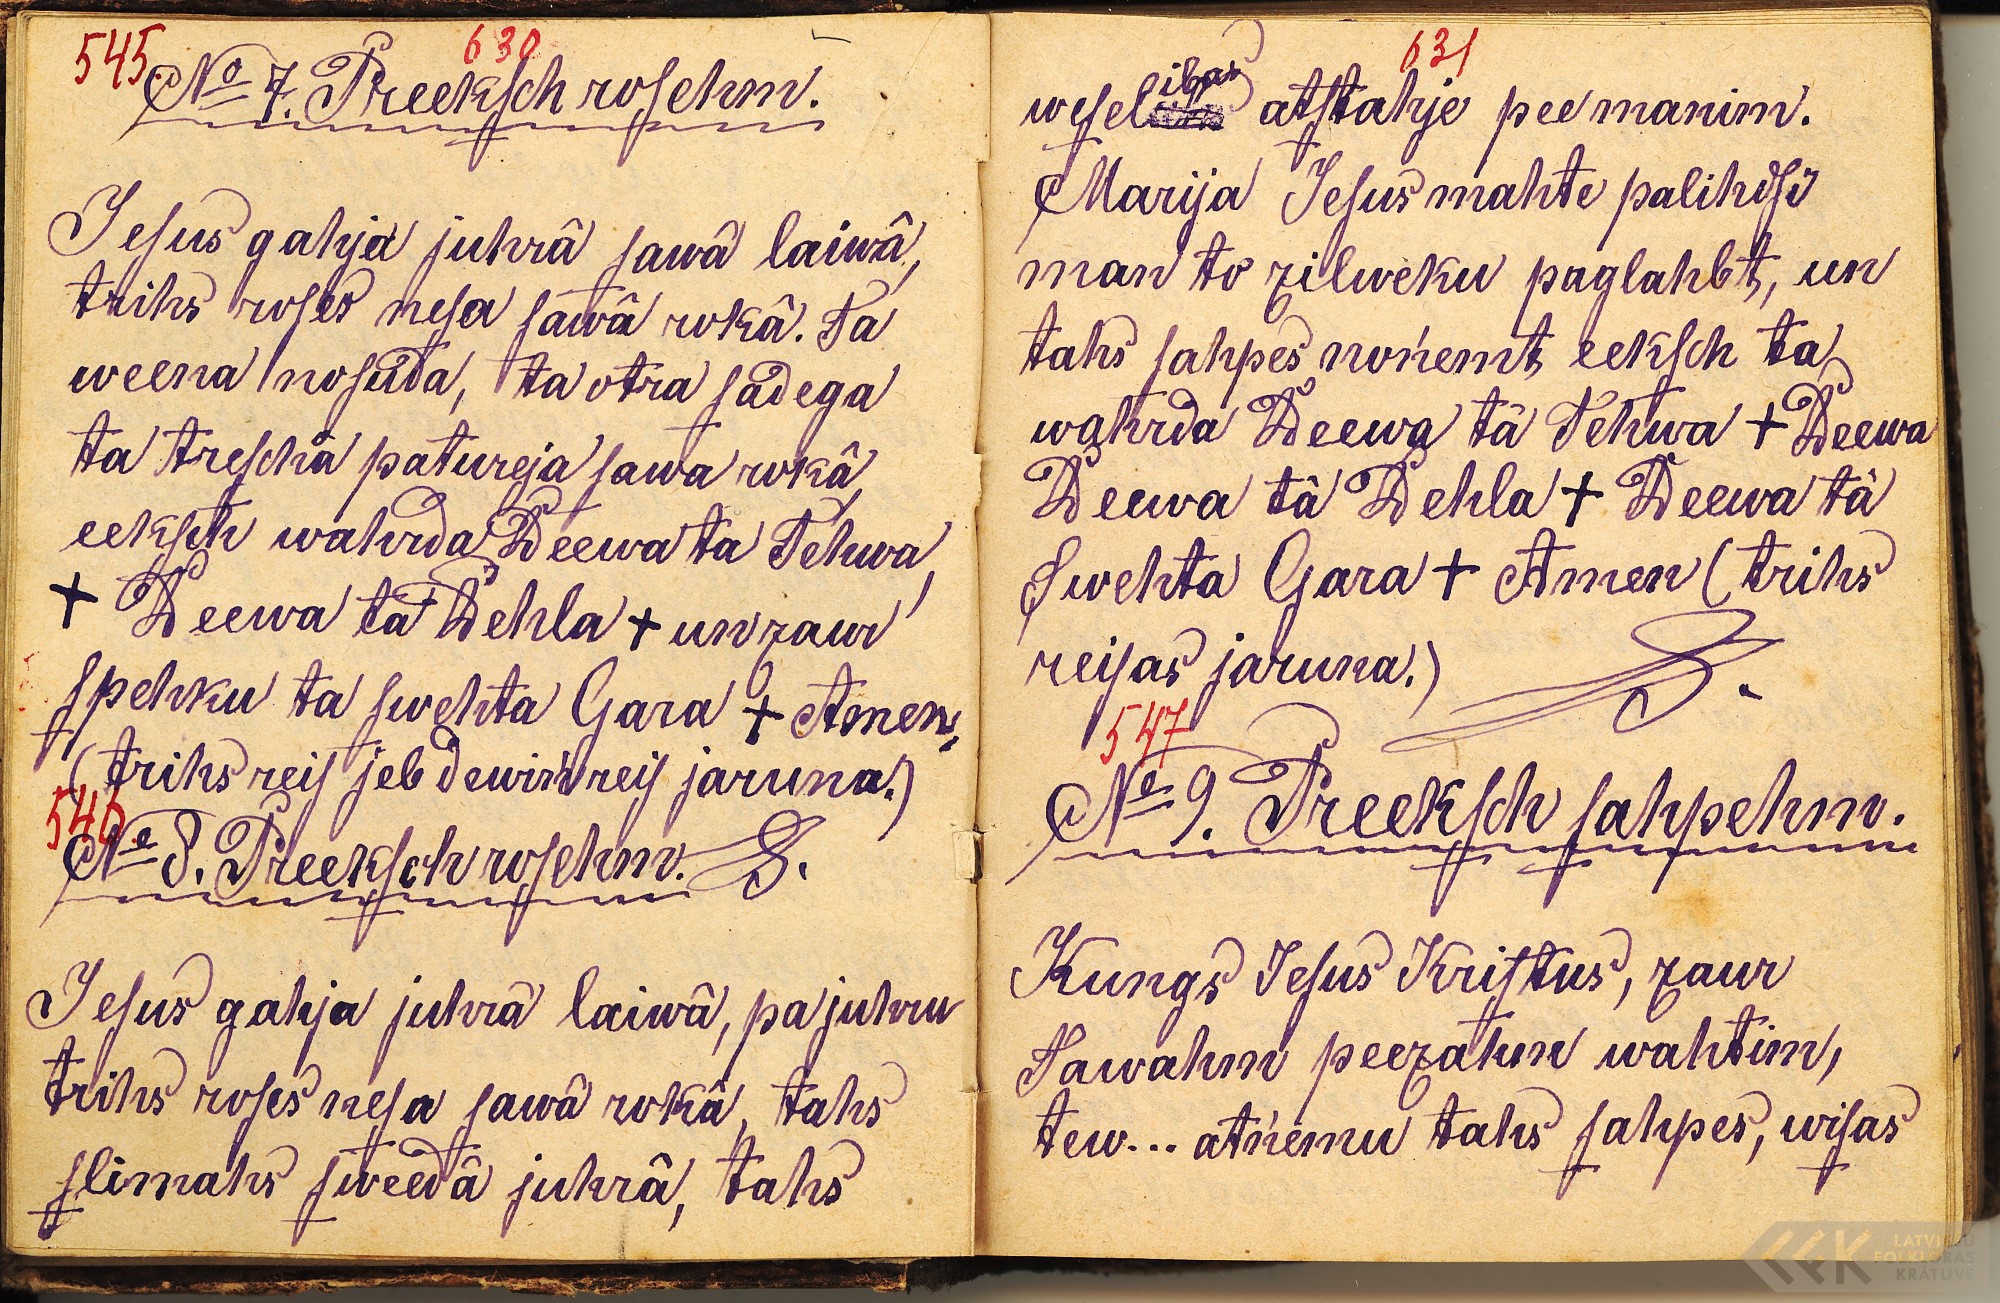 545. 630
No 7. Preeksch rosehm.
Jesus gahja juhrâ sawâ laiwâ,
trihs roses nesa sawâ rokâ. Ta
weena nosuda, ta otra sadega
ta trescha patureja sawa rokâ,
eeksch wahrda Deewa ta Tehwa,
+ Deewa tā Dehla + un zaur
spehku ta swehta Gara + Amen,
(trihs reis jeb dewiń reis jaruna.)
546.
No 8. Preeksch rosehm.
Jesus gahja juhrâ laiwâ, pa juhru
trihs roses nesa sawâ rokâ, tahs
slimahs sweedâ juhrâ, tahs
631
weselibas atstahje pee manim.
Marija Jesus mahte palihdsi
man to zilweku paglahbt, un
tahs sahpes nońemt, eeksch ta
wahrda Deewa tā Tehwa + Deewa
Deewa tâ Dehla + Deewa tā
Swehta Gara + Amen (trihs
reisas jaruna.)
547
No 9. Preeksch sahpehm.
Kungs Jesus Kristus, zaur
Tawahm peezahm wahtim,
tew... atńemu tahs sahpes, wisas
LATVIEŠU
FOLKLORAS
KRĀTUVE